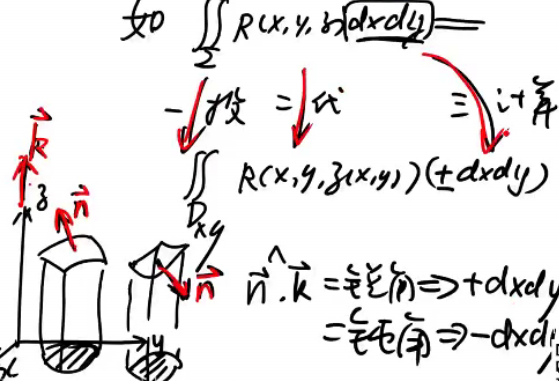 如 ∬_Σ R(x,y,z)dxdy =
一投 二代 三计算
∬_{Dxy} R(x,y,z(x,y))(±dxdy)
k⃗
z n⃗
n⃗ n⃗^.k⃗ = 锐角 ⇒ +dxdy
= 钝角 ⇒ -dxdy
x y